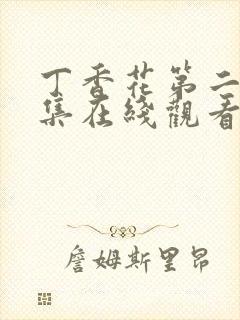 丁香花第二
集在綫觀看
詹姆斯里昂